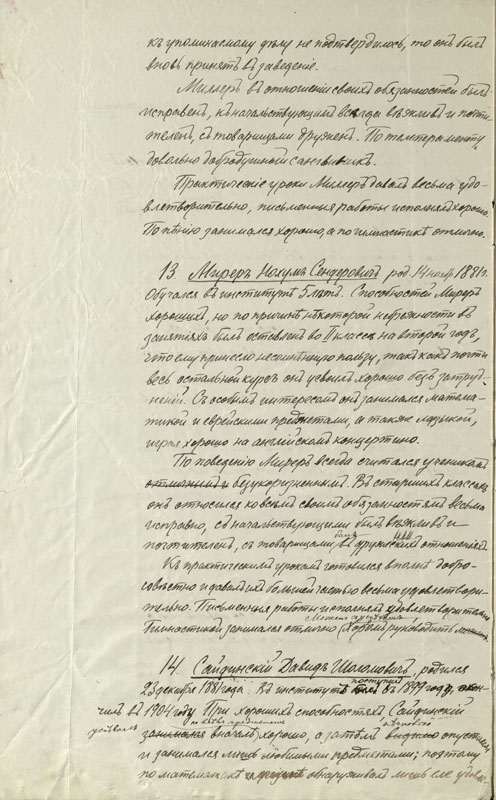 къ упоминаемому дѣлу не подтвердилось, то онъ былъ
вновь принятъ въ заведеніе.
Миллеръ въ отношеніи своихъ обязанностей былъ
исправенъ, къ начальствующимъ всегда вѣжливъ и почти-
теленъ, съ товарищами друженъ. По темпераменту
довольно добродушный сангвиникъ.
Практическіе уроки Миллеръ давалъ весьма удо-
влетворительно, письменныя работы исполнялъ хорошо.
По пѣнію занимался хорошо, а по гимнастикѣ отлично.
13. Миреръ Нохумъ Сендеровичъ род. 14 нояб. 1881 г.
Обучался въ институтѣ 5 лѣтъ. Способностей Миреръ
хорошихъ, но по причинѣ нѣкоторой небрежности въ
занятіяхъ былъ оставленъ во II классѣ на второй годъ,
что ему принесло несомнѣнную пользу, такъ какъ почти
весь остальной курсъ онъ усвоилъ хорошо безъ затруд-
неній. Съ особымъ интересомъ онъ занимался матема-
тикой и еврейскими предметами, а также музыкой,
играя хорошо на англійскомъ концертино.
По поведенію Миреръ всегда считался ученикомъ
отличнымъ и безукоризненнымъ. Въ старшихъ классахъ
онъ относился ко всѣмъ своимъ обязанностямъ весьма
исправно, съ начальствующими былъ вѣжливъ и
почтителенъ, съ товарищами былъ въ дружескихъ отношеніяхъ
Къ практическимъ урокамъ готовился вполнѣ добро-
совѣстно и давалъ ихъ большей частью весьма удовлетвори-
тельно. Письменныя работы исполнялъ удовлетворительно
Гимнастикой занимался отлично. Хоромъ руководить
14. Сайдинскій Давидъ Шоломовичъ, родился
23 декабря 1881 года. Въ институтъ поступилъ въ 1899 году, окон-
чилъ въ 1904 году. При хорошихъ способностяхъ Сайдинскій
усвоилъ вначалѣ хорошо, а затѣмъ
и занимался лишь любимыми предметами; поэтому
по математикѣ обнаруживалъ лишь еле удовл